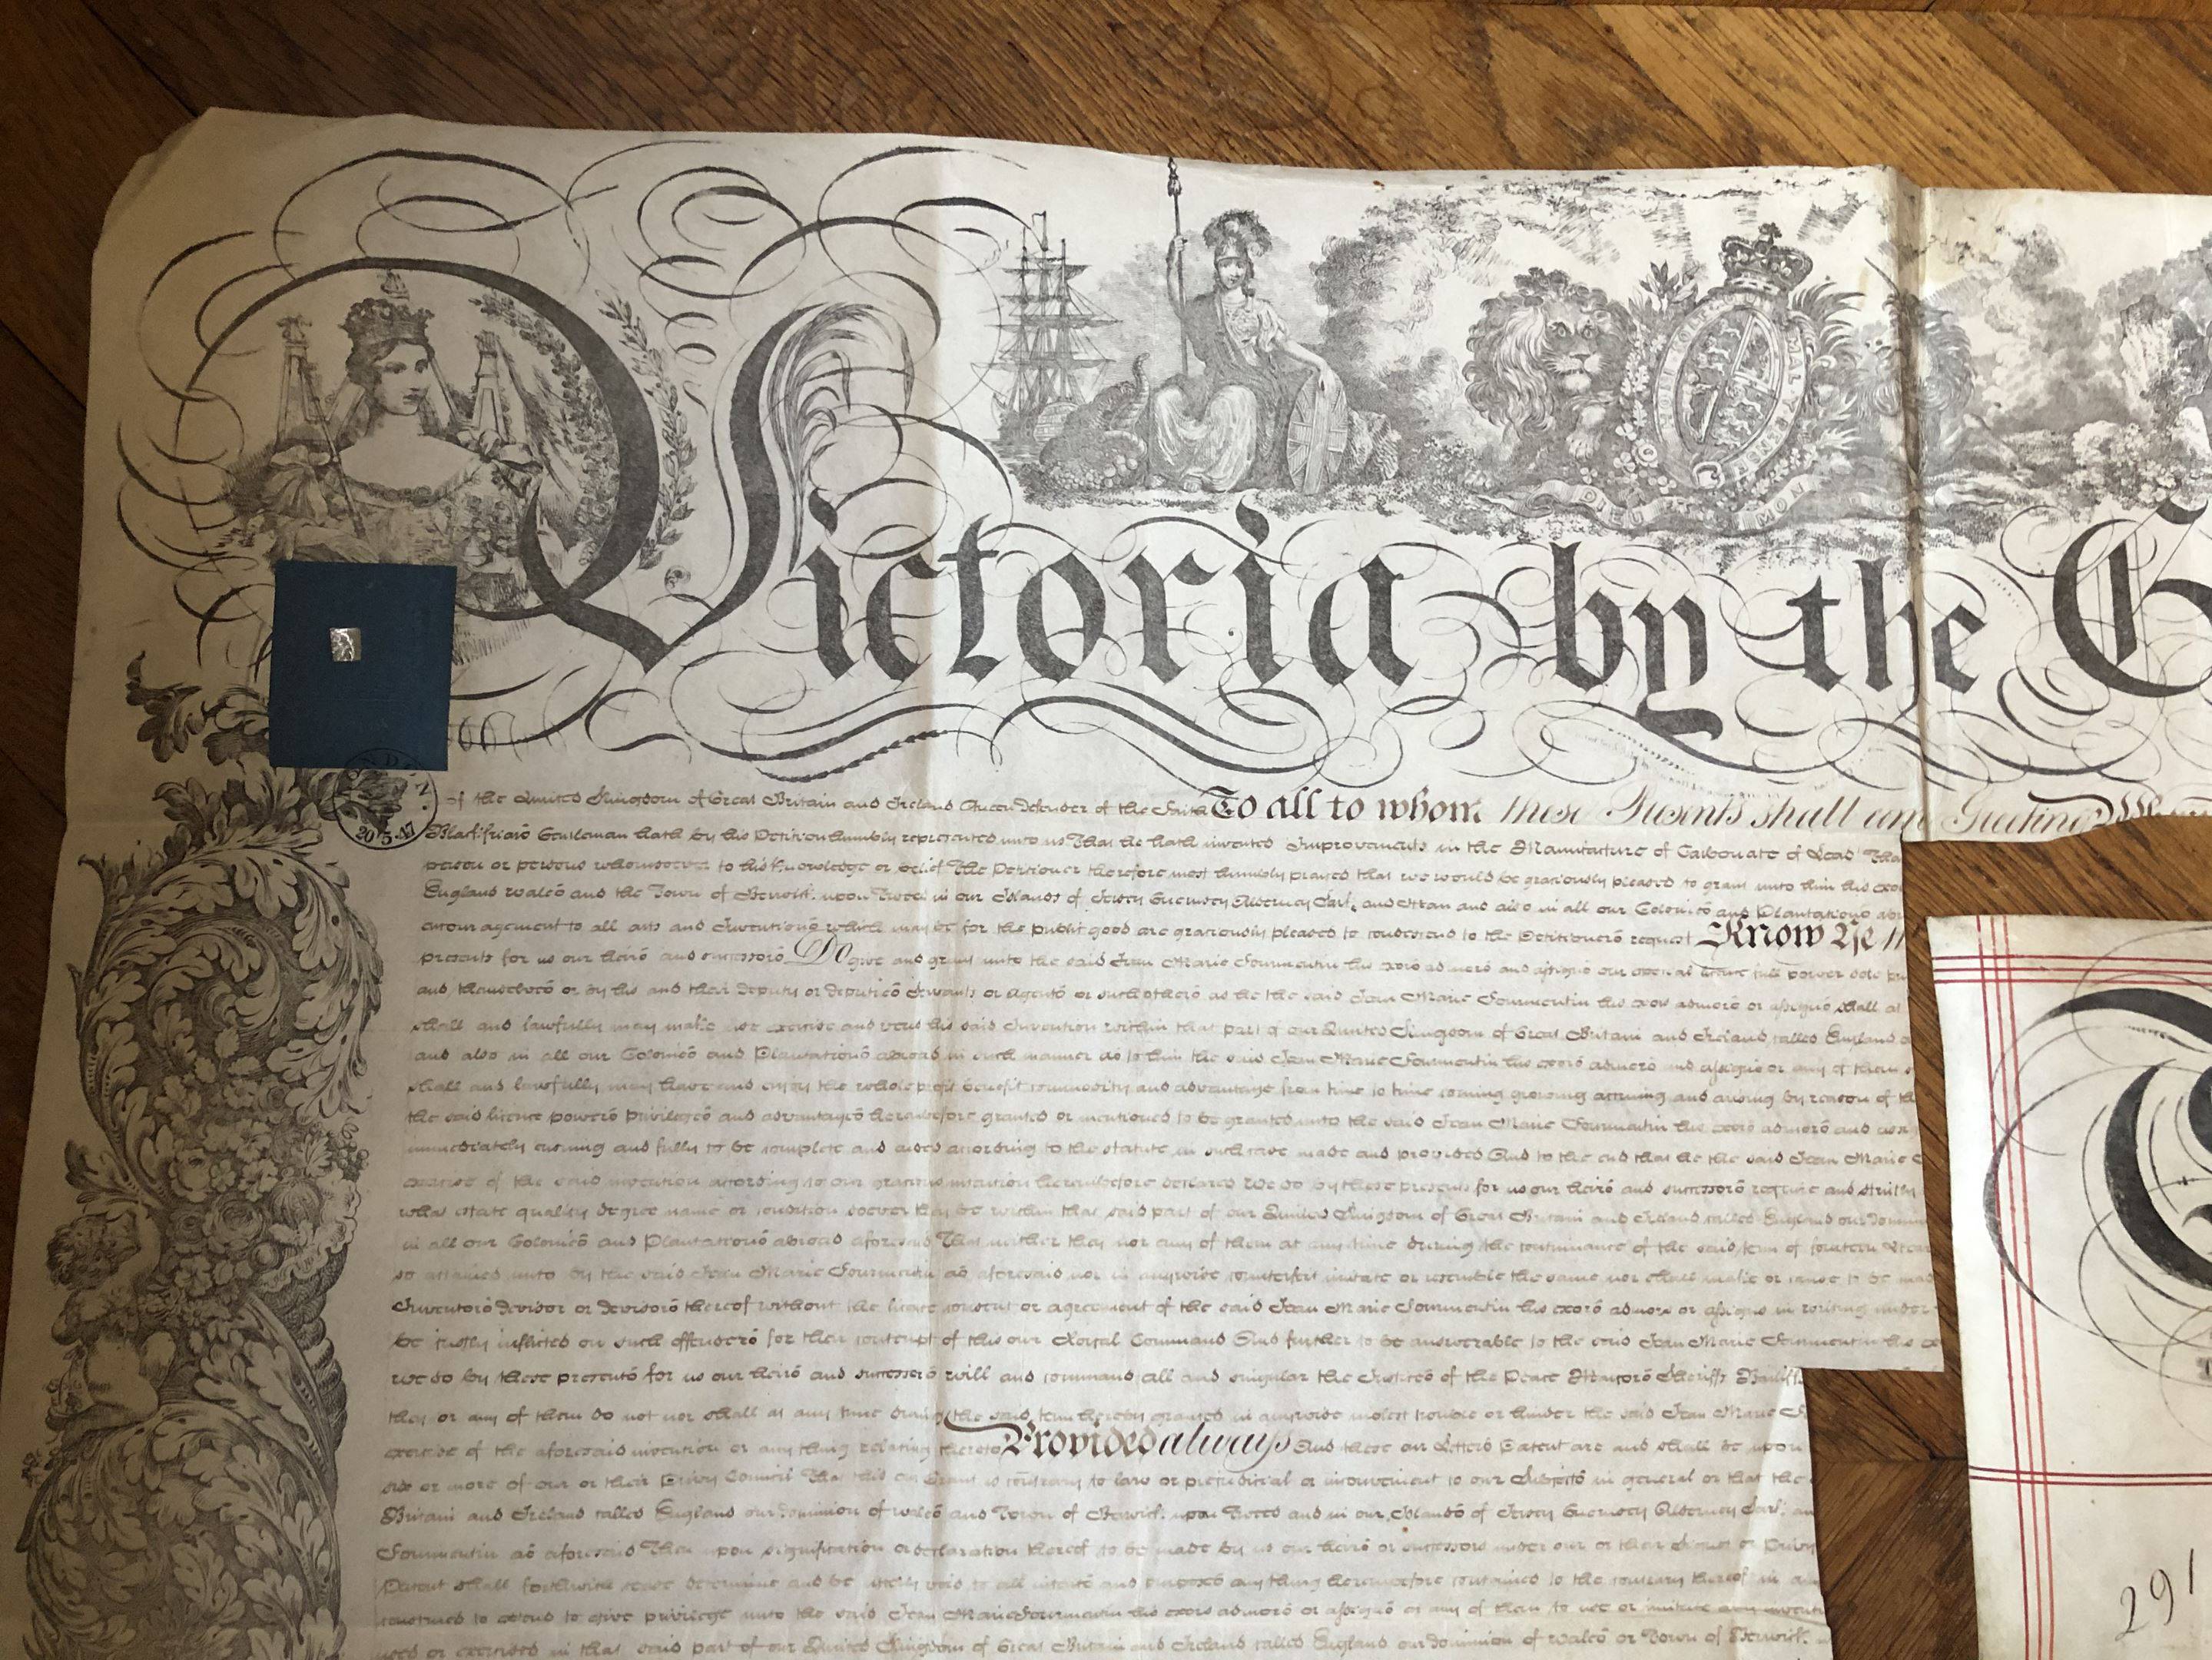 Victoria by the G
HONI SOIT QUI MAL Y PENSE
DIEU MON
LONDON
20 5 47
of the United Kingdom of Great Britain and Ireland Queen Defender of the Faith To all to whom these Presents shall come Greeting
Blackfriars Gentleman hath by his Petition humbly represented unto us That he hath invented Improvements in the Manufacture of Carbonate of Lead That
person or persons whomsoever to his knowledge or belief The Petitioner therefore most humbly prayed that we would be graciously pleased to grant unto him his
England Wales and the Town of Berwick upon Tweed in our Islands of Jersey Guernsey Alderney Sark and Man and also in all our Colonies and Plantations
encouragement to all arts and Inventions which may be for the public good are graciously pleased to condescend to the Petitioners request Know Ye
presents for us our heirs and successors Do give and grant unto the said Jean Marie Fourmentin his exors admors and assigns our especial licence full power sole
and themselves or by his and their deputy or deputies servants or agents or such others as he the said Jean Marie Fourmentin his exors admors or assigns shall at
shall and lawfully may make use exercise and vend his said Invention within that part of our United Kingdom of Great Britain and Ireland called England
and also in all our Colonies and Plantations abroad in such manner as to him the said Jean Marie Fourmentin his exors admors and assigns or any of them
shall and lawfully may have and enjoy the whole profit benefit commodity and advantage from time to time coming growing accruing and arising by reason of
the said licence powers privileges and advantages hereinbefore granted or mentioned to be granted unto the said Jean Marie Fourmentin his exors admors and
immediately ensuing and fully to be complete and ended according to the statute in such case made and provided And to the end that he the said Jean Marie
exercise of the said invention according to our gracious intention hereinbefore declared We do by these presents for us our heirs and successors require and strictly
what estate quality degree name or condition soever they be within that said part of our United Kingdom of Great Britain and Ireland called England our
in all our Colonies and Plantations abroad aforesaid That neither they nor any of them at any time during the continuance of the said term of fourteen
so attained unto by the said Jean Marie Fourmentin as aforesaid nor in anywise counterfeit imitate or resemble the same nor shall make or cause to be
Inventors devisor or devisors thereof without the licence consent or agreement of the said Jean Marie Fourmentin his exors admors or assigns in writing under
be justly inflicted on such offenders for their contempt of this our Royal Command And further to be answerable to the said Jean Marie Fourmentin his
we do by these presents for us our heirs and successors will and command all and singular the Justices of the Peace Mayors Sheriffs
they or any of them do not nor shall at any time during the said term hereby granted in anywise molest trouble or hinder the said Jean Marie
exercise of the aforesaid invention or any thing relating thereto Provided always And these our Letters Patent are and shall be upon
six or more of our or their Privy Council That this our Grant is contrary to law or prejudicial or inconvenient to our Subjects in general or that the
Britain and Ireland called England our dominion of Wales and Town of Berwick upon Tweed and in our Islands of Jersey Guernsey Alderney Sark
Fourmentin as aforesaid Then upon signification or declaration thereof to be made by us our heirs or successors under our or their Signet or Privy
Patent shall forthwith cease determine and be utterly void to all intents and purposes any thing hereinbefore contained to the contrary thereof in
construed to extend to give privilege unto the said Jean Marie Fourmentin his exors admors or assigns or any of them to use or imitate any
used or exercised in that said part of our United Kingdom of Great Britain and Ireland called England our dominion of Wales or Town of Berwick
291